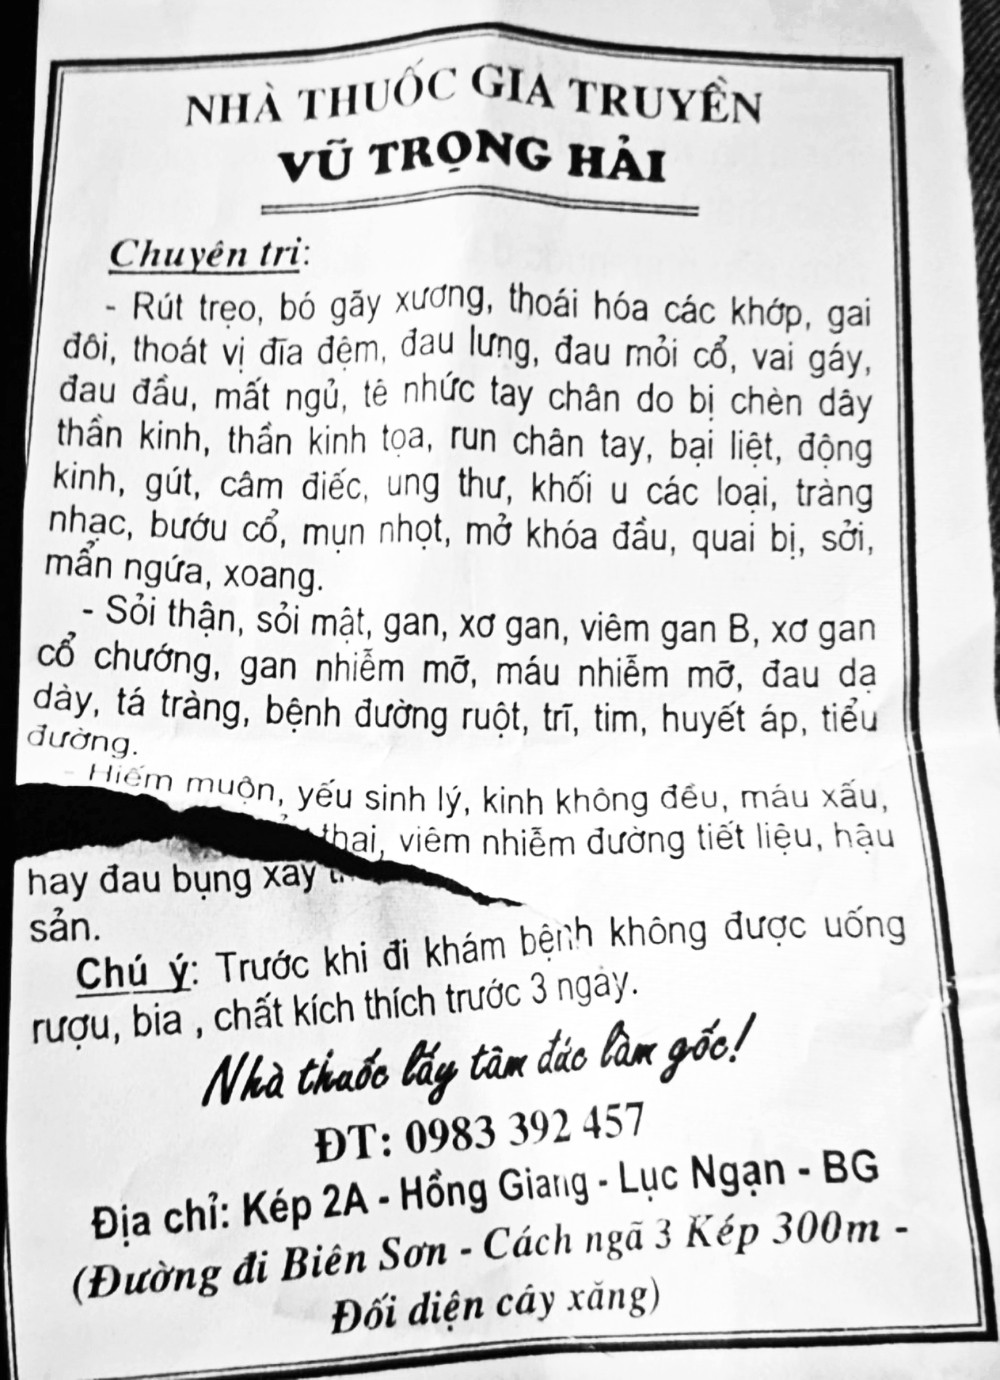 NHÀ THUỐC GIA TRUYỀN
VŨ TRỌNG HẢI
Chuyên trị:
- Rút trẹo, bó gãy xương, thoái hóa các khớp, gai
đôi, thoát vị đĩa đệm, đau lưng, đau mỏi cổ, vai gáy,
đau đầu, mất ngủ, tê nhức tay chân do bị chèn dây
thần kinh, thần kinh tọa, run chân tay, bại liệt, động
kinh, gút, câm điếc, ung thư, khối u các loại, tràng
nhạc, bướu cổ, mụn nhọt, mở khóa đầu, quai bị, sởi,
mẩn ngứa, xoang.
- Sỏi thận, sỏi mật, gan, xơ gan, viêm gan B, xơ gan
cổ chướng, gan nhiễm mỡ, máu nhiễm mỡ, đau dạ
dày, tá tràng, bệnh đường ruột, trĩ, tim, huyết áp, tiểu
đường.
- Hiếm muộn, yếu sinh lý, kinh không đều, máu xấu,
thai, viêm nhiễm đường tiết liệu, hậu
hay đau bụng xay
sản.
Chú ý: Trước khi đi khám bệnh không được uống
rượu, bia , chất kích thích trước 3 ngày.
Nhà thuốc lấy tâm đức làm gốc!
ĐT: 0983 392 457
Địa chỉ: Kép 2A - Hồng Giang - Lục Ngạn - BG
(Đường đi Biên Sơn - Cách ngã 3 Kép 300m -
Đối diện cây xăng)